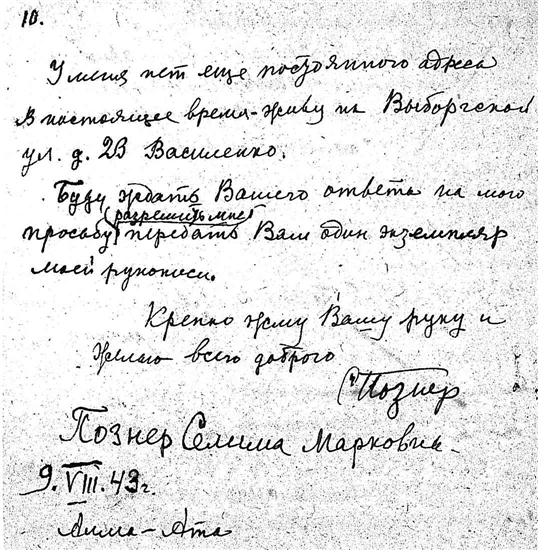 10.
У меня нет еще постоянного адреса
в настоящее время - живу на Выборгской
ул. д. 2В Василенко.
Буду ждать Вашего ответа на мою
(разрешить мне)
просьбу передать Вам один экземпляр
моей рукописи.
Крепко жму Вашу руку и
желаю всего доброго
Познер
Познер Селима Марковна.
9.VIII.43г.
Алма-Ата